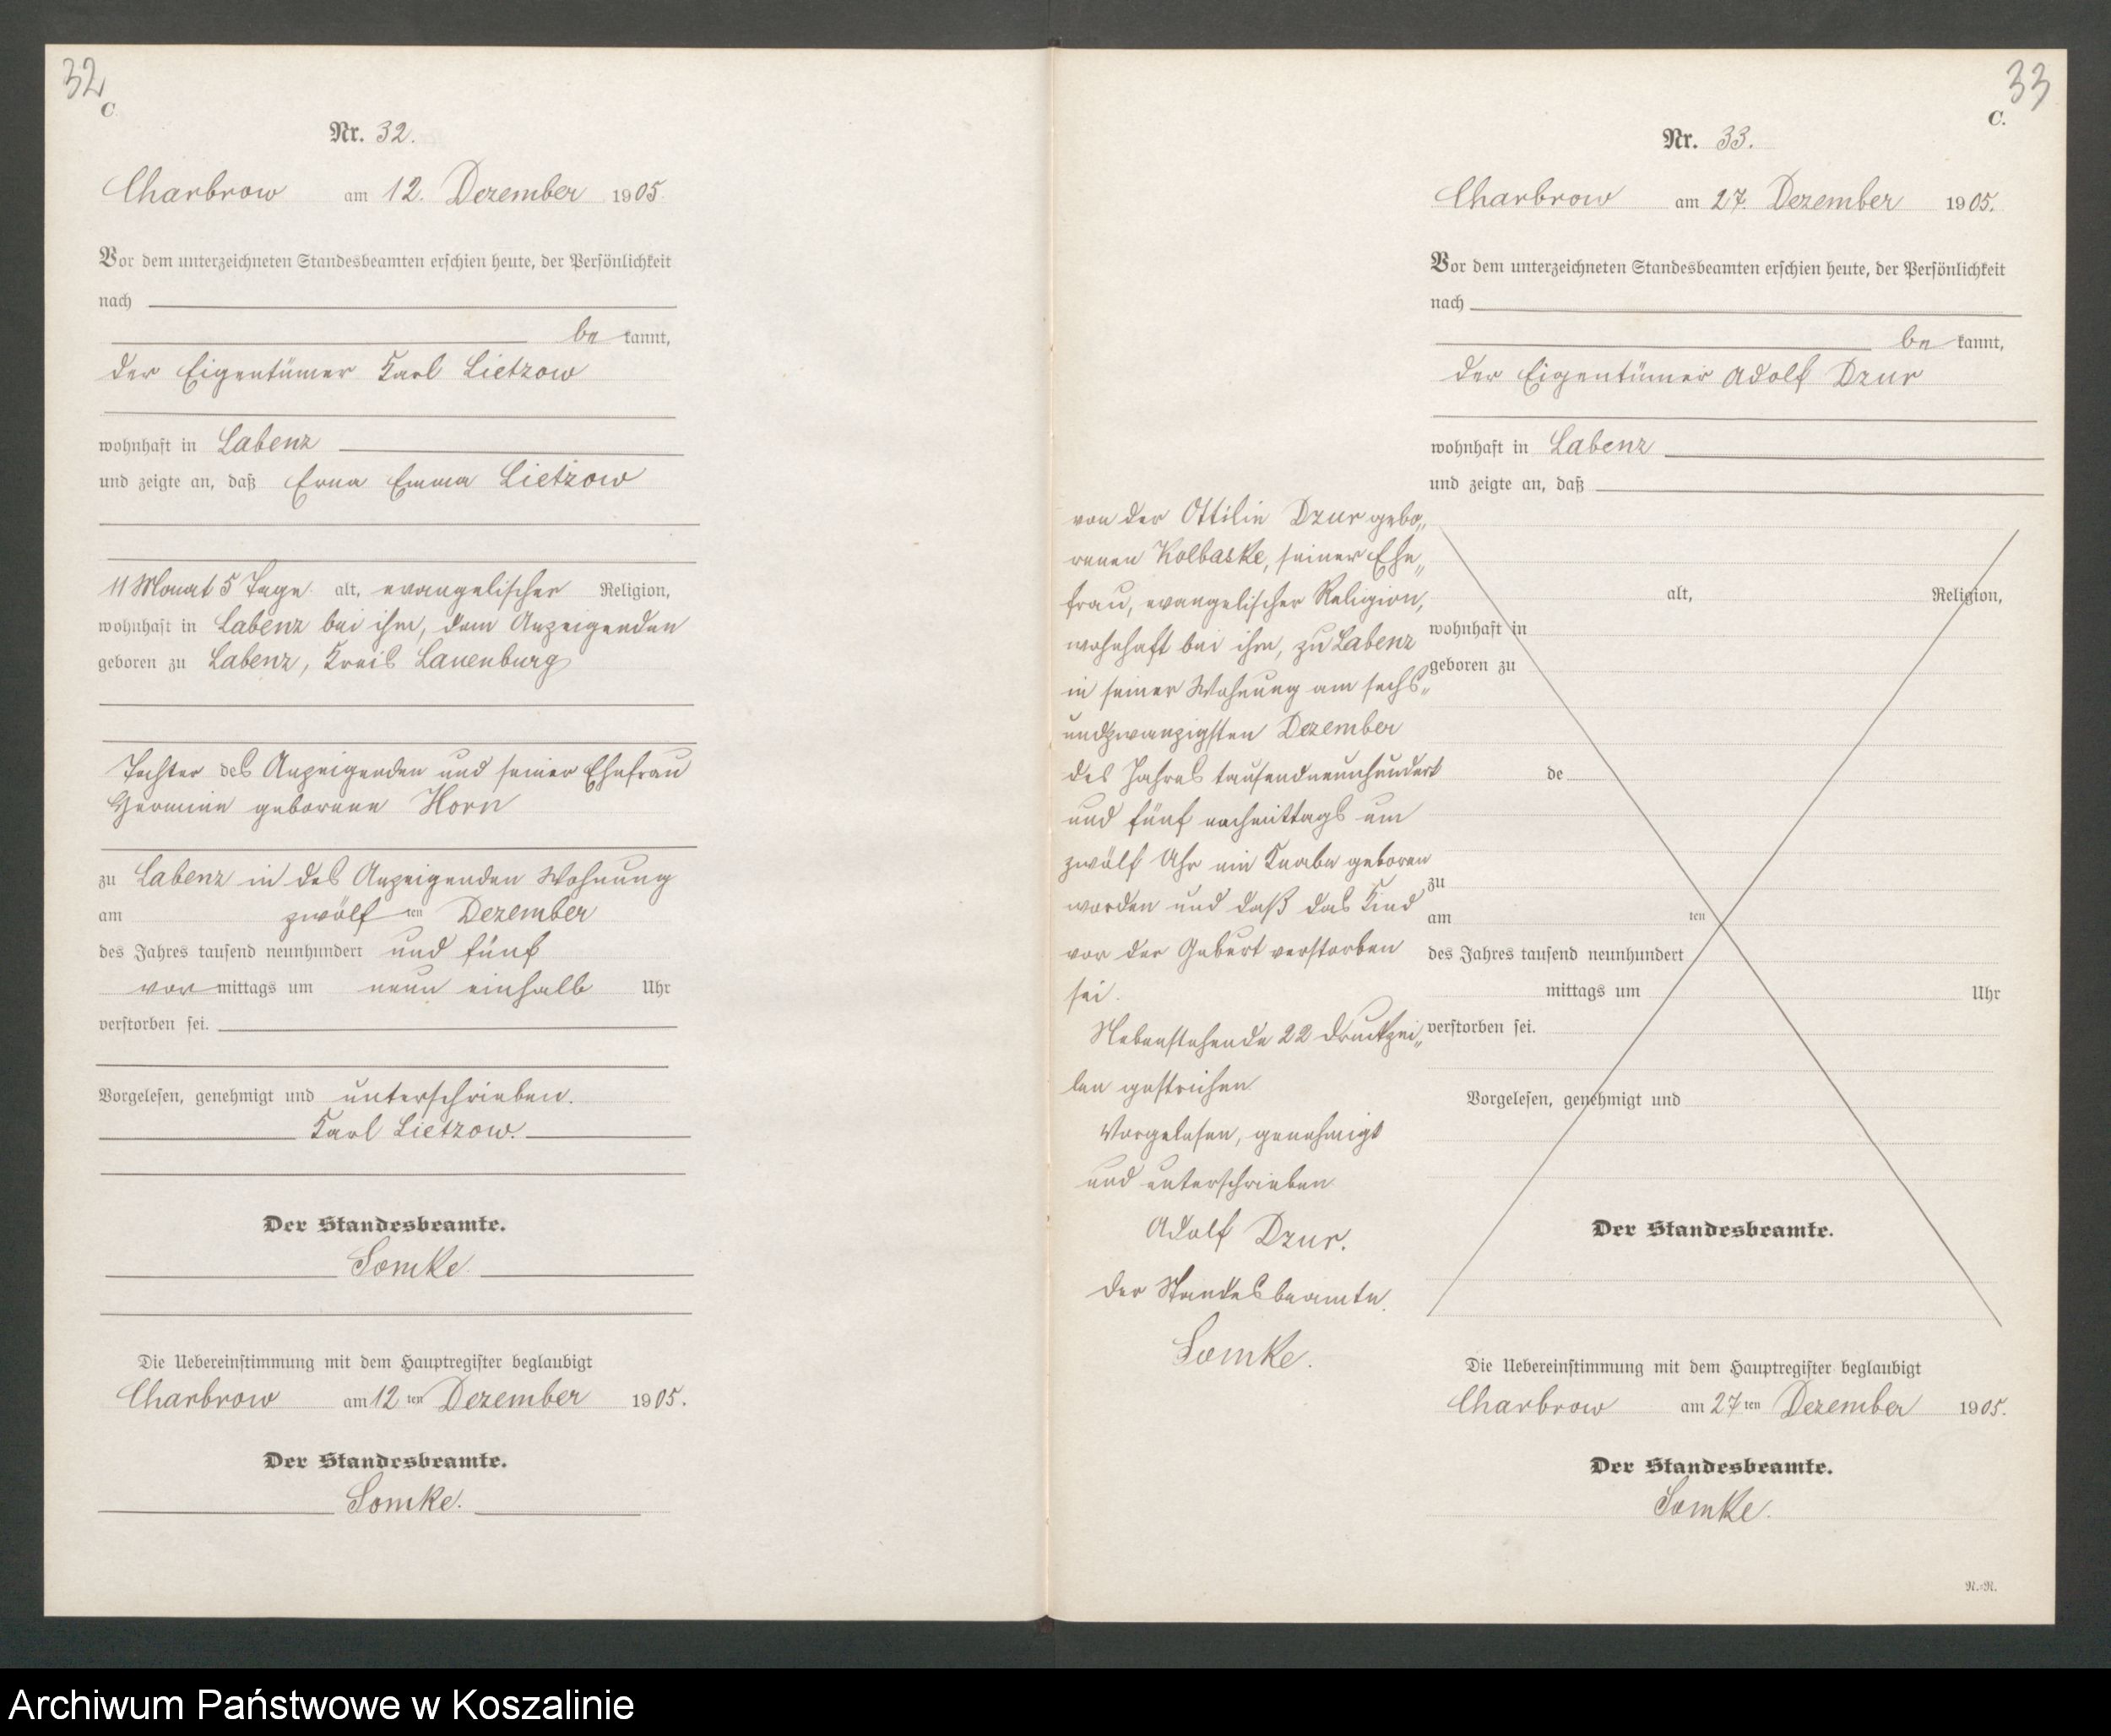 32
C
Nr. 32.
Charbrow am 12. Dezember 1905.
Vor dem unterzeichneten Standesbeamten erschien heute, der Persönlichkeit
nach
be kannt,
der Eigentümer Karl Lietzow
wohnhaft in Labenz
und zeigte an, daß Erna Emma Lietzow
11 Monat 5 Tage alt, evangelischer Religion,
wohnhaft in Labenz bei ihm, dem Anzeigenden
geboren zu Labenz, Kreis Lauenburg
Tochter des Anzeigenden und seiner Ehefrau
Hermine geborene Horn
zu Labenz in des Anzeigenden Wohnung
am zwölf ten Dezember
des Jahres tausend neunhundert und fünf
vor mittags um neun einhalb Uhr
verstorben sei.
Vorgelesen, genehmigt und unterschrieben.
Karl Lietzow.
Der Standesbeamte.
Somke.
Die Uebereinstimmung mit dem Hauptregister beglaubigt
Charbrow am 12 ten Dezember 1905.
Der Standesbeamte.
Somke.
33
C.
Nr. 33.
Charbrow am 27. Dezember 1905.
Vor dem unterzeichneten Standesbeamten erschien heute, der Persönlichkeit
nach
be kannt,
der Eigentümer Adolf Dzur
wohnhaft in Labenz
und zeigte an, daß
von der Ottilie Dzur gebo„
renen Kolbaske, seiner Ehe„
frau, evangelischer Religion,
wohnhaft bei ihm, zu Labenz
in seiner Wohnung am sechs„
undzwanzigsten Dezember
des Jahres tausendneunhundert
und fünf nachmittags um
zwölf Uhr ein Knabe geboren
worden und daß das Kind
vor der Geburt verstorben
sei.
Nebenstehende 22 Druckzei„
len gestrichen
Vorgelesen, genehmigt
und unterschrieben
Adolf Dzur.
Der Standesbeamte.
Somke.
alt, Religion,
wohnhaft in
geboren zu
de
zu
am ten
des Jahres tausend neunhundert
mittags um Uhr
verstorben sei.
Vorgelesen, genehmigt und
Der Standesbeamte.
Die Uebereinstimmung mit dem Hauptregister beglaubigt
Charbrow am 27 ten Dezember 1905.
Der Standesbeamte.
Somke.
N.-N.
Archiwum Państwowe w Koszalinie